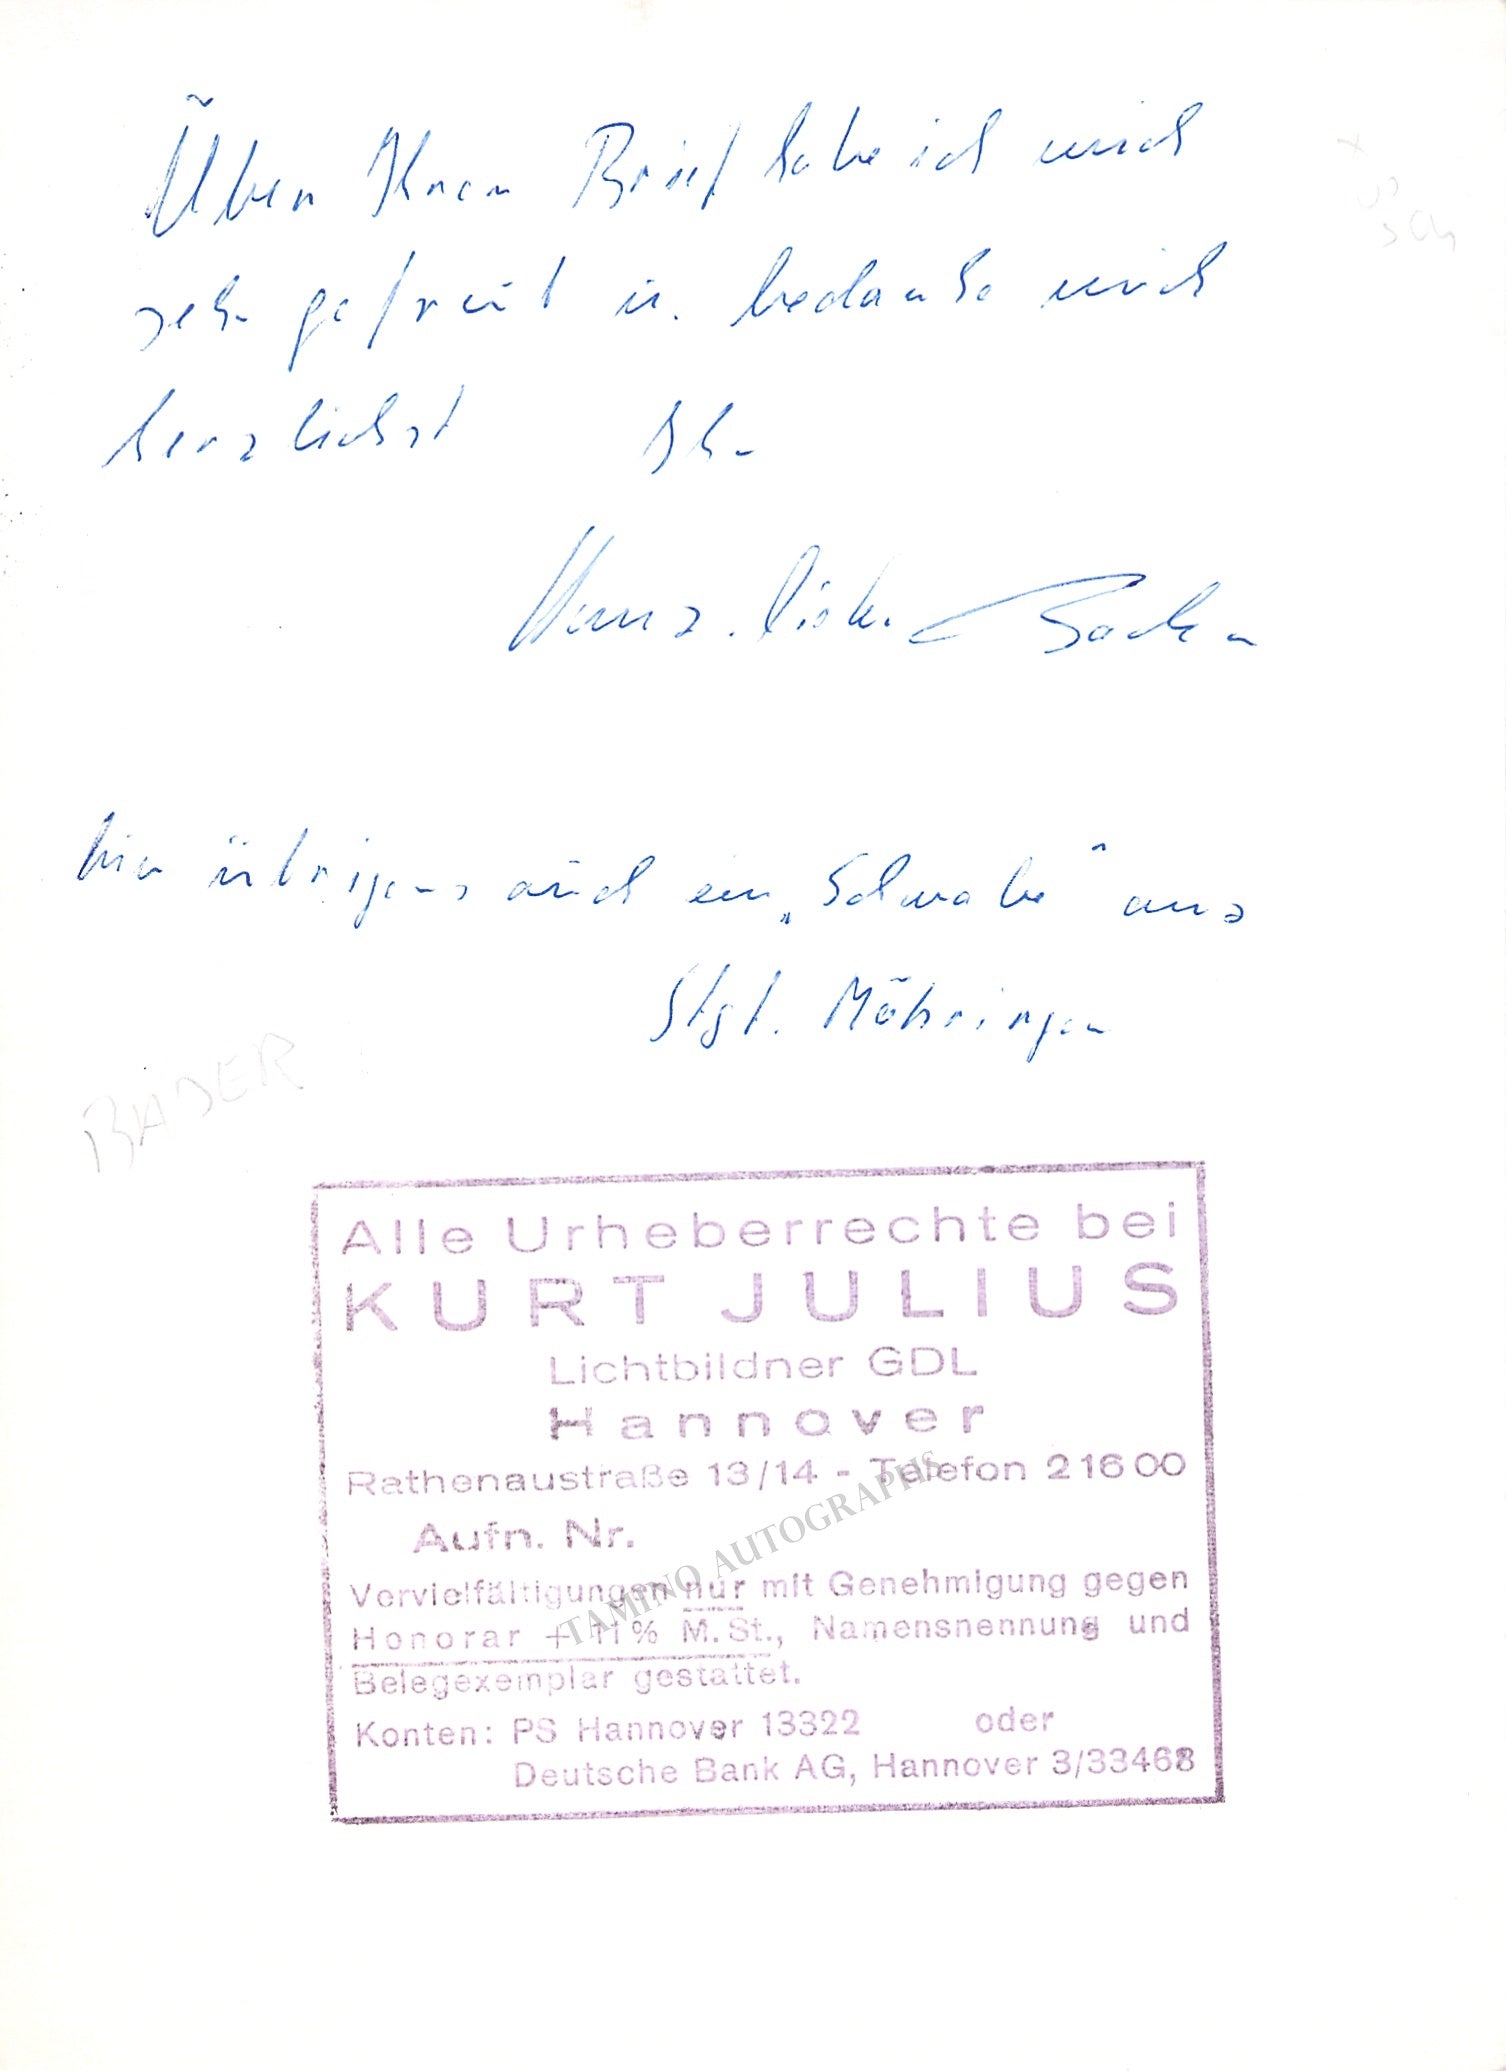 Über Ihren Brief habe ich mich
sehr gefreut u. bedanke mich
herzlichst Ihr
Hans-Dieter Bader
bin übrigens auch ein „Schwabe“ aus
Stgt. Möhringen
BADER
Alle Urheberrechte bei
KURT JULIUS
Lichtbildner GDL
Hannover
Rathenaustraße 13/14 - Telefon 21600
Aufn. Nr.
Vervielfältigungen nur mit Genehmigung gegen
Honorar + 11% M.St., Namensnennung und
Belegexemplar gestattet.
Konten: PS Hannover 13322 oder
Deutsche Bank AG, Hannover 3/33468
TAMINO AUTOGRAPHS